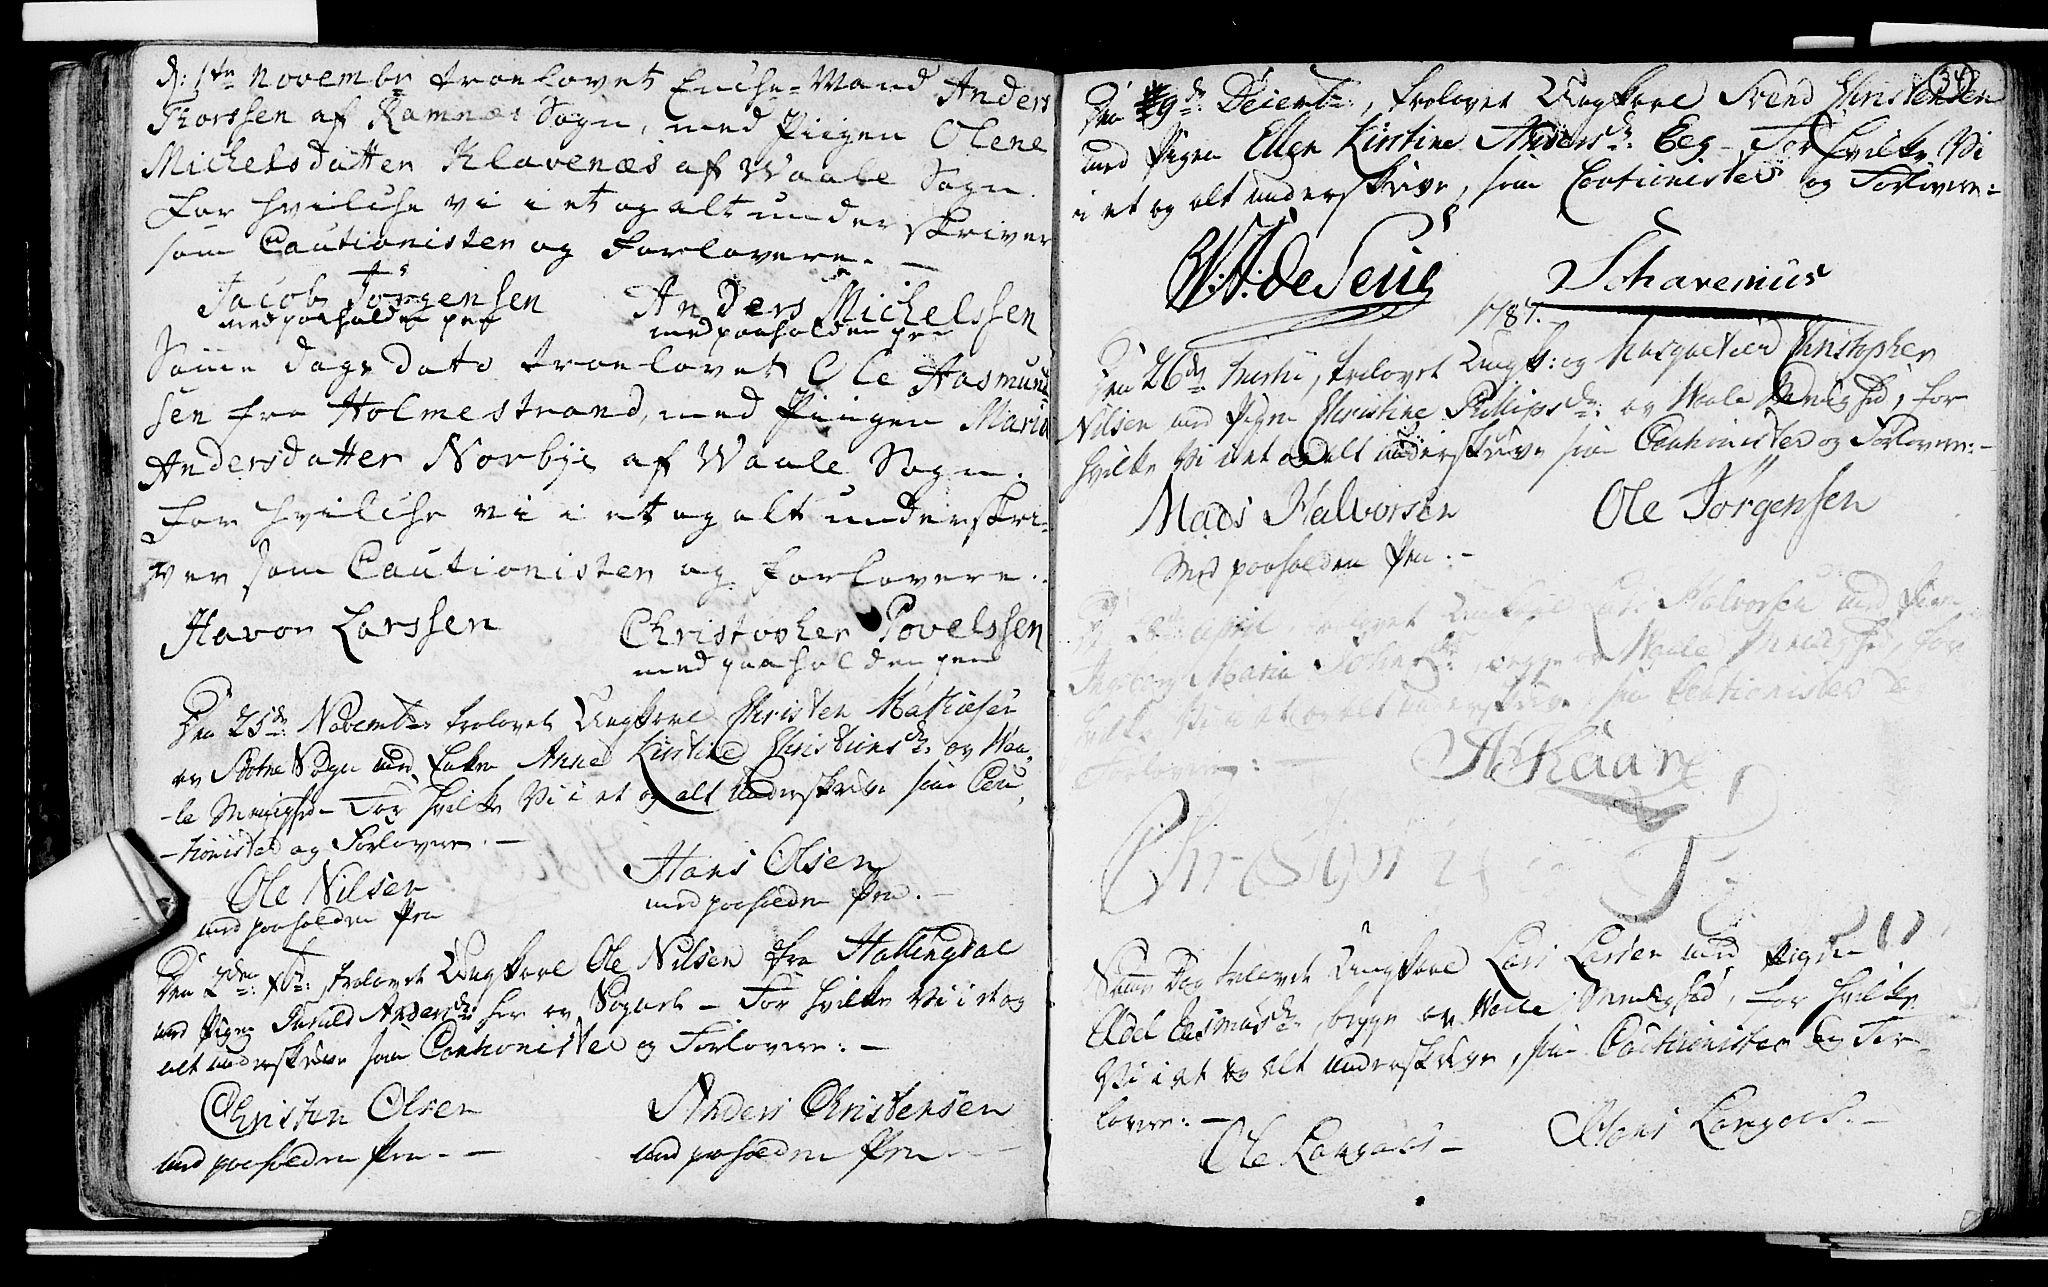 d: 1te Novembr troelovet Enche-Mand Anders
Thorssen af Ramnæs Sogn, med Piigen Olene
Michelsdatter Klavenæs af Waale Sogn.
For hvilche vi i et og alt under skriver
som Cautionister og Forlovere. —
Jacob Jörgensen Anders Michelssen
med paaholden pen med paaholden pen
Samme dags dato troelovet Ole Aasmund
sen fra Holmestrand, med Piigen Maria
Andersdatter Norbye af Waale Sogn.
For hvilche vi i et og alt underskri-
ver som Cautionister og forlovere.
Havor Larssen Christopher Povelssen
med paaholden pen
Den 25de Novembr trolovet Ungkarl Christen Mathiesen
av Botne Sogn med Enken Anne Kirstine Christensdr: av Waa-
-le Menighed - For hvilke Vi i et og alt underskrive som Cau-
-tionister og Forlovere. —
Ole Nilsen Hans Olsen
med paaholden Pen med paaholden Pen. —
Den 2den Xbr:, trolovet Ungkarl Ole Nilsen fra Hallingdal
med Pigen Andersdr: her av Sognet - For hvilke Vi i et og
alt underskrive som Cautionister og Forlovere: —
Christen Olsen Anders Christensen
med paaholden Pen. — med paaholden Pen
34
Den 9de Decembr:, trolovet Ungkarl Svend Christensen
med Pigen Ellen Kirstine Andersdr: Eeg - For hvilke Vi
i et og alt underskrive, som Cautionister og Forlovere:
W. A: de Seue Schavenius
1787.
Den 26de Martii, trolovet Ungk: og Musquetier Christopher
Nilsen med Pigen Christine Phillipsdr: av Waale Menighed, for
hvilke Vi i et og alt underskrive som Cautionister og Forlovere: -
Mads Halvorsen Ole Jörgensen
Med paaholden Pen: -
April trolovet Ungkarl Halvorsen med Pigen
Ingeborg Maria, begge av Waale Menighed, for
hvilke Vi i et og alt underskrive, som Cautionister og
Forlovere: —
Samme Dag trolovet Ungkarl Lars Larsen med Pigen
Edel Rasmusdr:, begge av Waale Menighed, for hvilke
Vi i et og alt underskrive, som Cautionister og For-
lovere: —
Ole Langaas - Hans Langaas. -